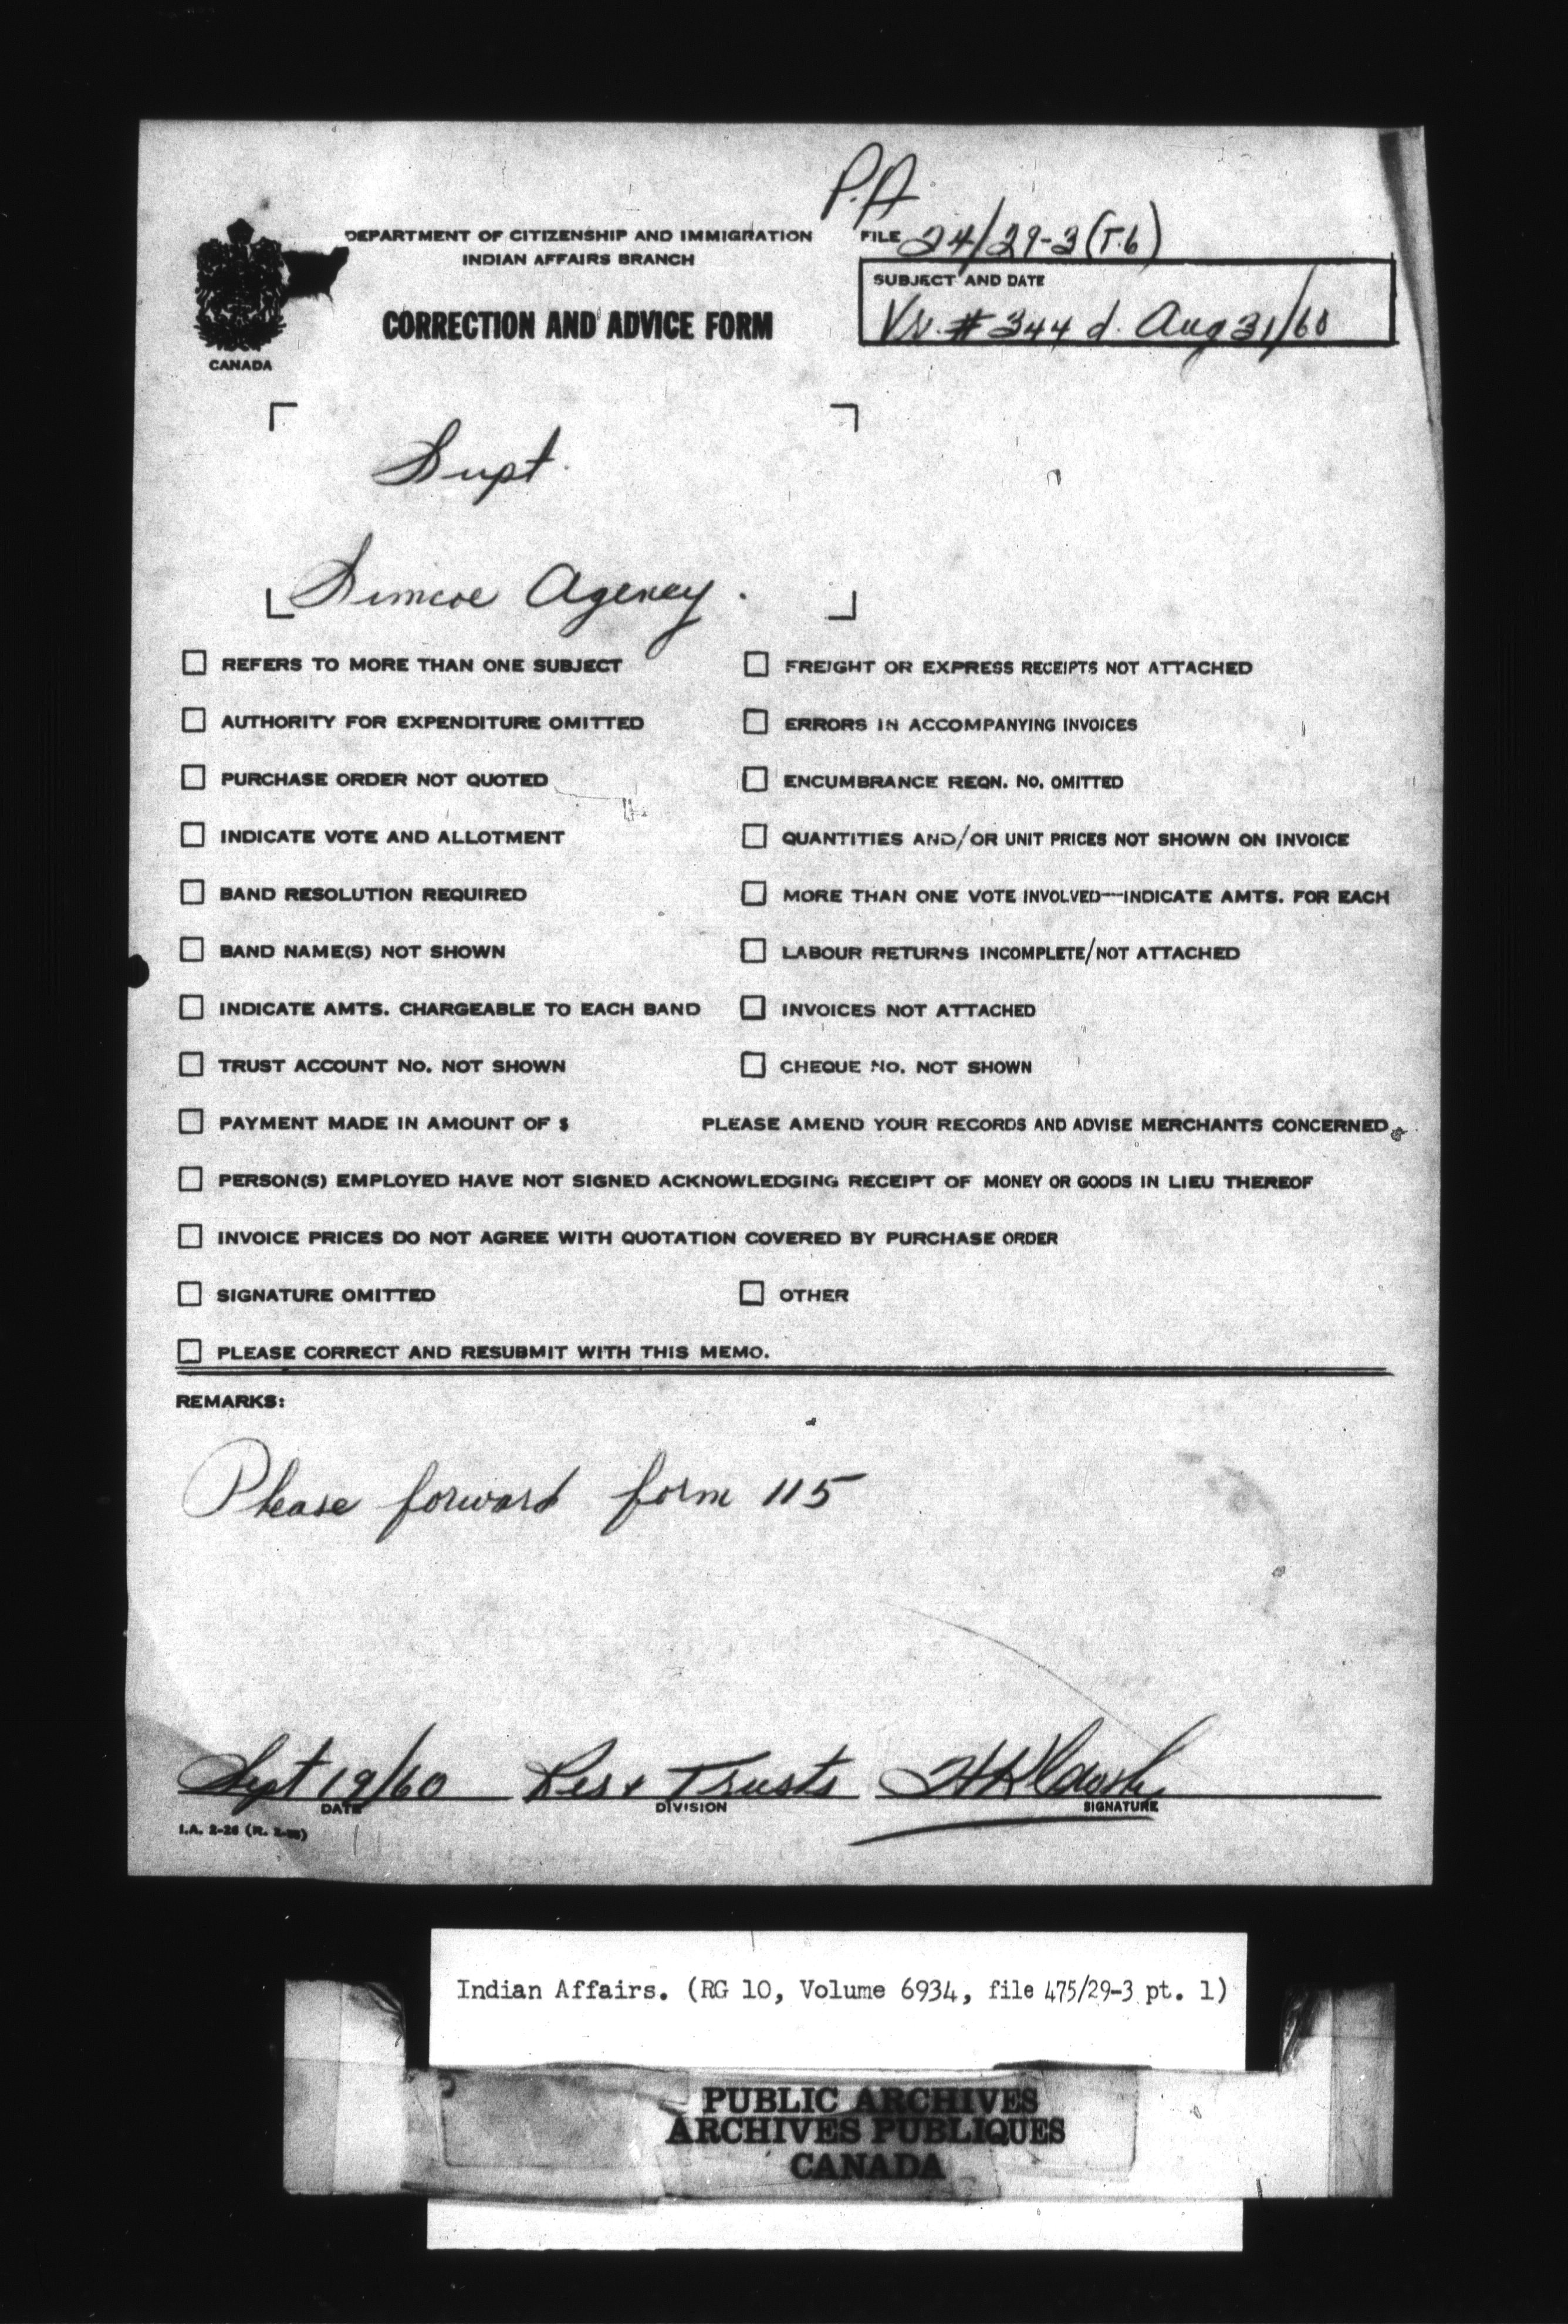 P.A
DEPARTMENT OF CITIZENSHIP AND IMMIGRATION
INDIAN AFFAIRS BRANCH
CORRECTION AND ADVICE FORM
CANADA
FILE 24/29-3 (T.6)
SUBJECT AND DATE
Vr. # 344 d. Aug 31/60
Supt.
Simcoe Agency.
☐ REFERS TO MORE THAN ONE SUBJECT ☐ FREIGHT OR EXPRESS RECEIPTS NOT ATTACHED
☐ AUTHORITY FOR EXPENDITURE OMITTED ☐ ERRORS IN ACCOMPANYING INVOICES
☐ PURCHASE ORDER NOT QUOTED ☐ ENCUMBRANCE REQN. NO. OMITTED
☐ INDICATE VOTE AND ALLOTMENT ☐ QUANTITIES AND/OR UNIT PRICES NOT SHOWN ON INVOICE
☐ BAND RESOLUTION REQUIRED ☐ MORE THAN ONE VOTE INVOLVED—INDICATE AMTS. FOR EACH
☐ BAND NAME(S) NOT SHOWN ☐ LABOUR RETURNS INCOMPLETE/NOT ATTACHED
☐ INDICATE AMTS. CHARGEABLE TO EACH BAND ☐ INVOICES NOT ATTACHED
☐ TRUST ACCOUNT NO. NOT SHOWN ☐ CHEQUE NO. NOT SHOWN
☐ PAYMENT MADE IN AMOUNT OF $ PLEASE AMEND YOUR RECORDS AND ADVISE MERCHANTS CONCERNED.
☐ PERSON(S) EMPLOYED HAVE NOT SIGNED ACKNOWLEDGING RECEIPT OF MONEY OR GOODS IN LIEU THEREOF
☐ INVOICE PRICES DO NOT AGREE WITH QUOTATION COVERED BY PURCHASE ORDER
☐ SIGNATURE OMITTED ☐ OTHER
☐ PLEASE CORRECT AND RESUBMIT WITH THIS MEMO.
REMARKS:
Please forward form 115
Sept 19/60 Res & Trusts
DATE DIVISION SIGNATURE
I.A. 2-26
Indian Affairs. (RG 10, Volume 6934, file 475/29-3 pt. 1)
PUBLIC ARCHIVES
ARCHIVES PUBLIQUES
CANADA